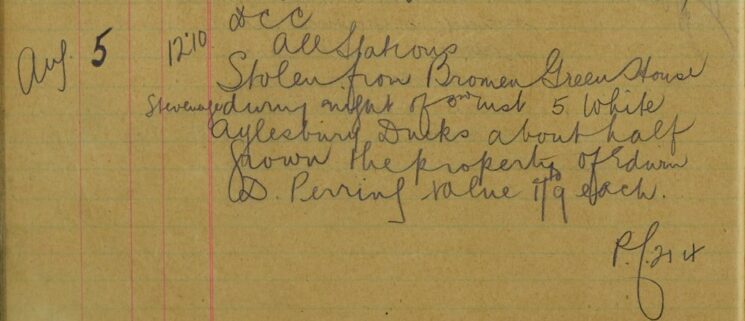 DCC
Aug. 5 12.10 All Stations
Stolen from Bromen Green House
Stevenage during night of 3rd inst 5 White
Aylesbury Ducks about half
grown the property of Edwin
D. Perring value 1/9 each.
P.C.